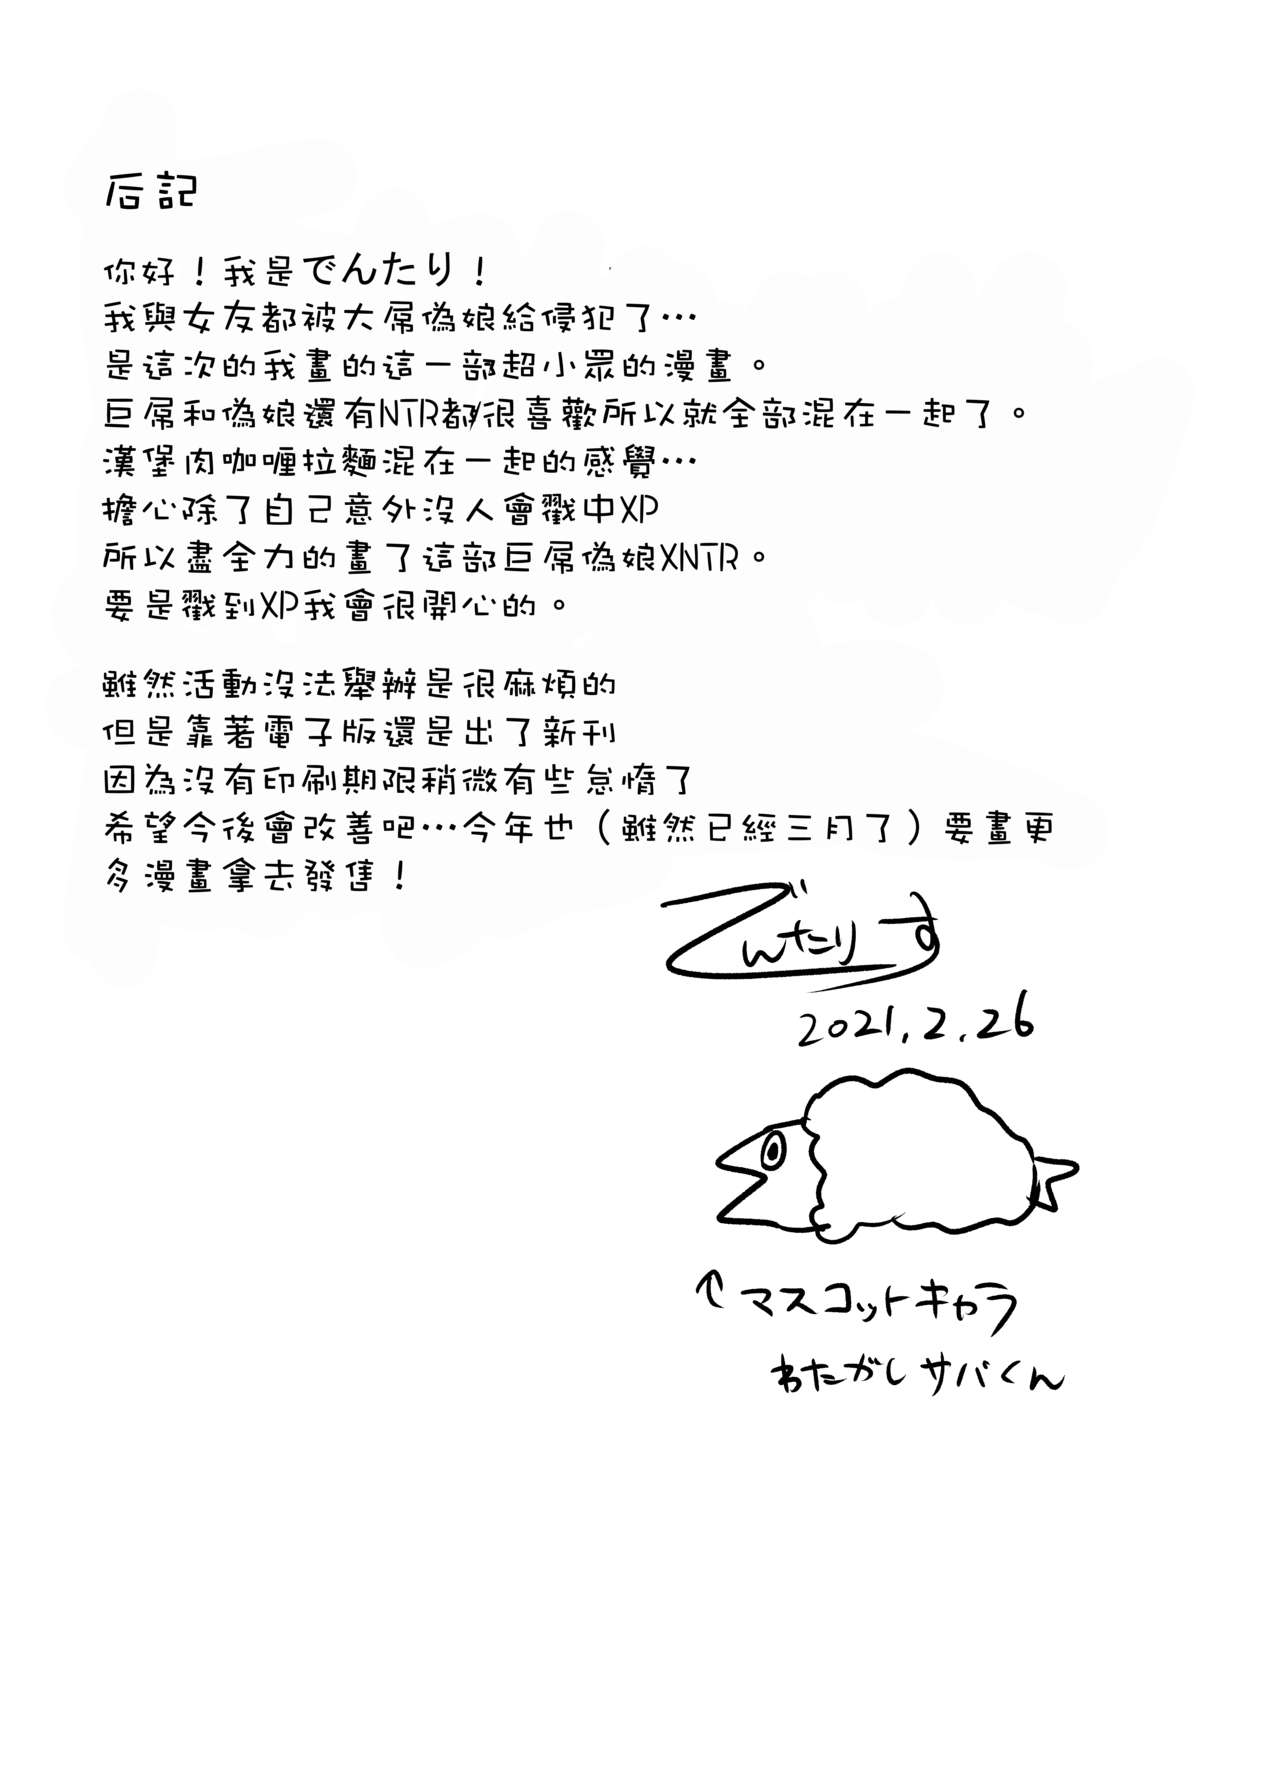 后記
你好！我是でんたり！
我與女友都被大屌偽娘給侵犯了…
是這次的我畫的這一部超小眾的漫畫。
巨屌和偽娘還有NTR都很喜歡所以就全部混在一起了。
漢堡肉咖喱拉麵混在一起的感覺…
擔心除了自己意外沒人會戳中XP
所以盡全力的畫了這部巨屌偽娘XNTR。
要是戳到XP我會很開心的。
雖然活動沒法舉辦是很麻煩的
但是靠著電子版還是出了新刊
因為沒有印刷期限稍微有些怠惰了
希望今後會改善吧…今年也（雖然已經三月了）要畫更
多漫畫拿去發售！
でんたりす
2021.2.26
↑マスコットキャラ
わたがしサバくん